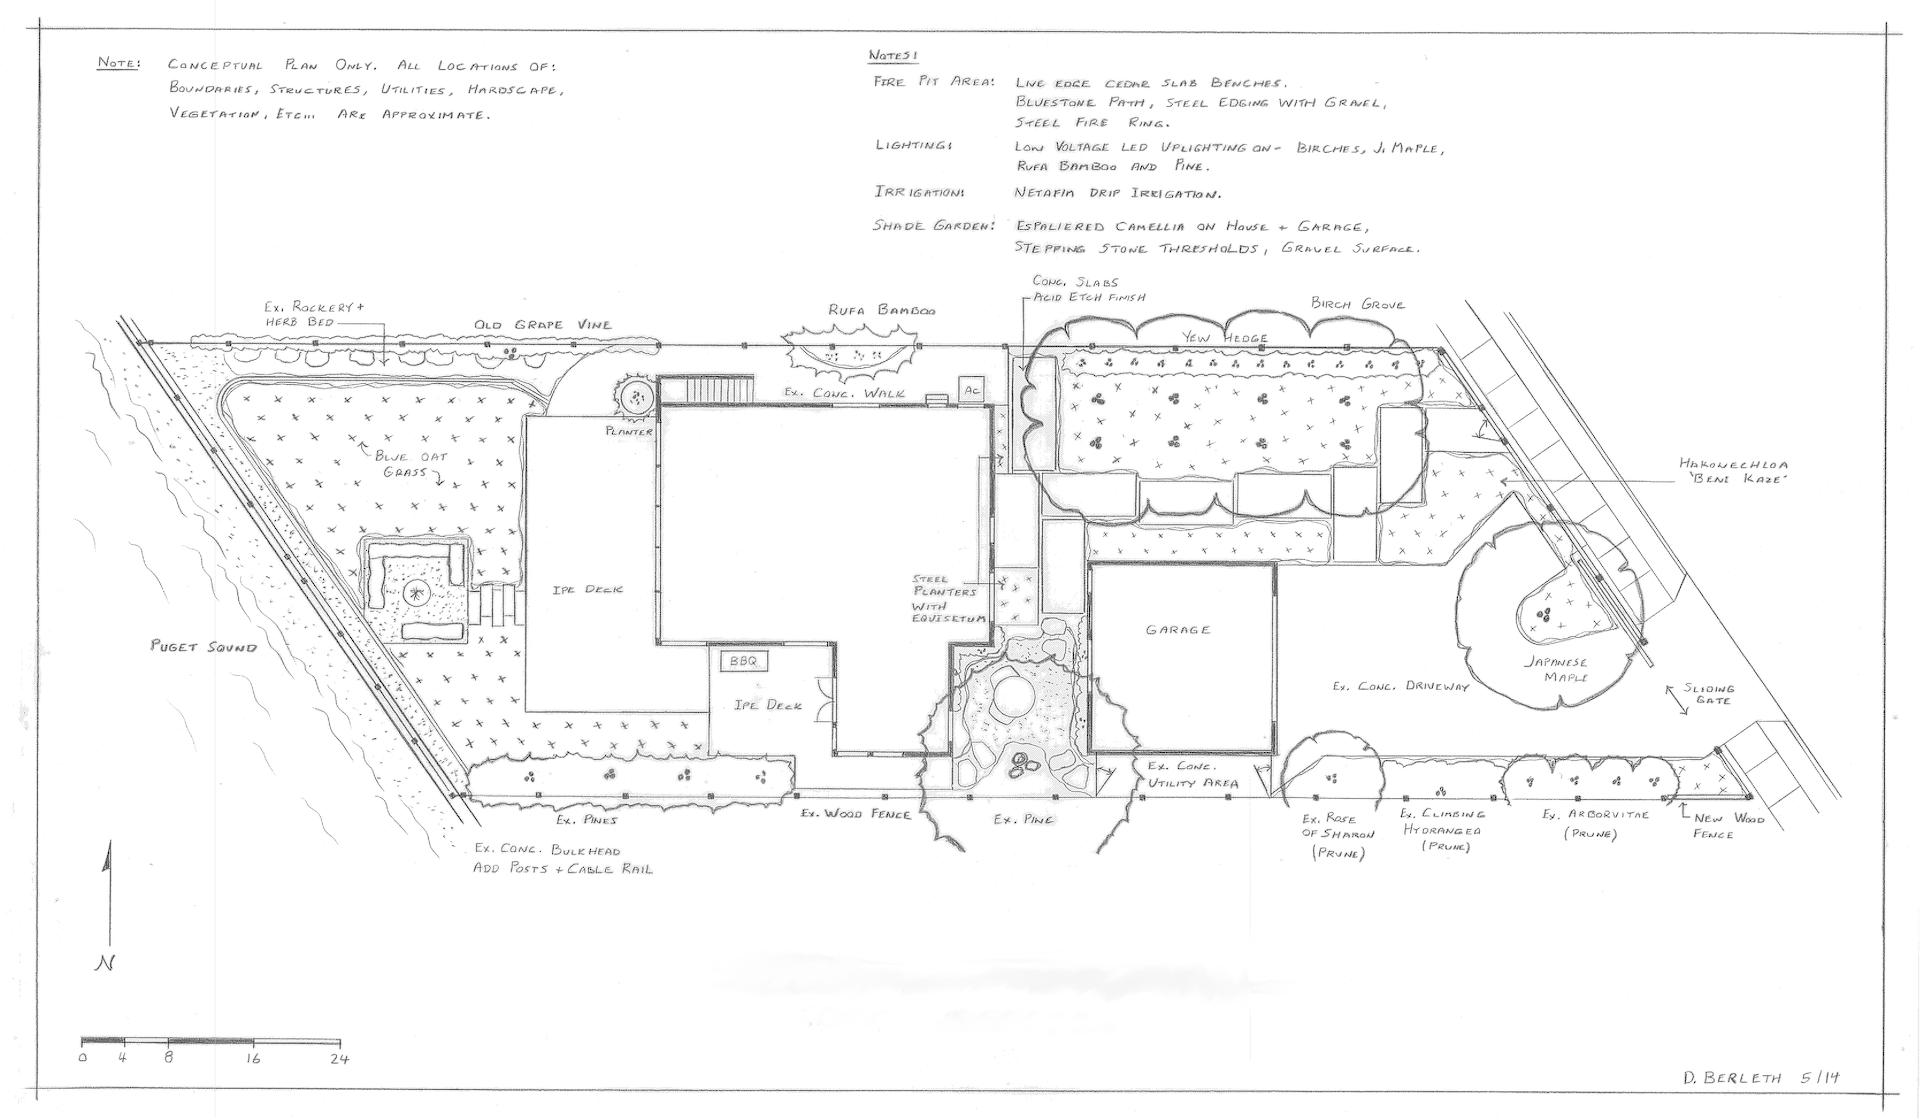 NOTE: CONCEPTUAL PLAN ONLY. ALL LOCATIONS OF:
BOUNDARIES, STRUCTURES, UTILITIES, HARDSCAPE,
VEGETATION, ETC... ARE APPROXIMATE.
NOTES:
FIRE PIT AREA: LIVE EDGE CEDAR SLAB BENCHES.
BLUESTONE PATH, STEEL EDGING WITH GRAVEL,
STEEL FIRE RING.
LIGHTING: LOW VOLTAGE LED UPLIGHTING ON- BIRCHES, J. MAPLE,
RUFA BAMBOO AND PINE.
IRRIGATION: NETAFIM DRIP IRRIGATION.
SHADE GARDEN: ESPALIERED CAMELLIA ON HOUSE + GARAGE,
STEPPING STONE THRESHOLDS, GRAVEL SURFACE.
CONC. SLABS
ACID ETCH FINISH
EX. ROCKERY +
HERB BED
OLD GRAPE VINE
RUFA BAMBOO
BIRCH GROVE
YEW HEDGE
EX. CONC. WALK
AC
PLANTER
BLUE OAT
GRASS
HAKONECHLOA
'BENI KAZE'
IPE DECK
STEEL
PLANTERS
WITH
EQUISETUM
GARAGE
PUGET SOUND
BBQ
IPE DECK
JAPANESE
MAPLE
EX. CONC. DRIVEWAY
SLIDING
GATE
EX. CONC.
UTILITY AREA
EX. PINES
EX. WOOD FENCE
EX. PINE
EX. ROSE
OF SHARON
(PRUNE)
EX. CLIMBING
HYDRANGEA
(PRUNE)
EX. ARBORVITAE
(PRUNE)
NEW WOOD
FENCE
EX. CONC. BULKHEAD
ADD POSTS + CABLE RAIL
N
0 4 8 16 24
D. BERLETH 5/14